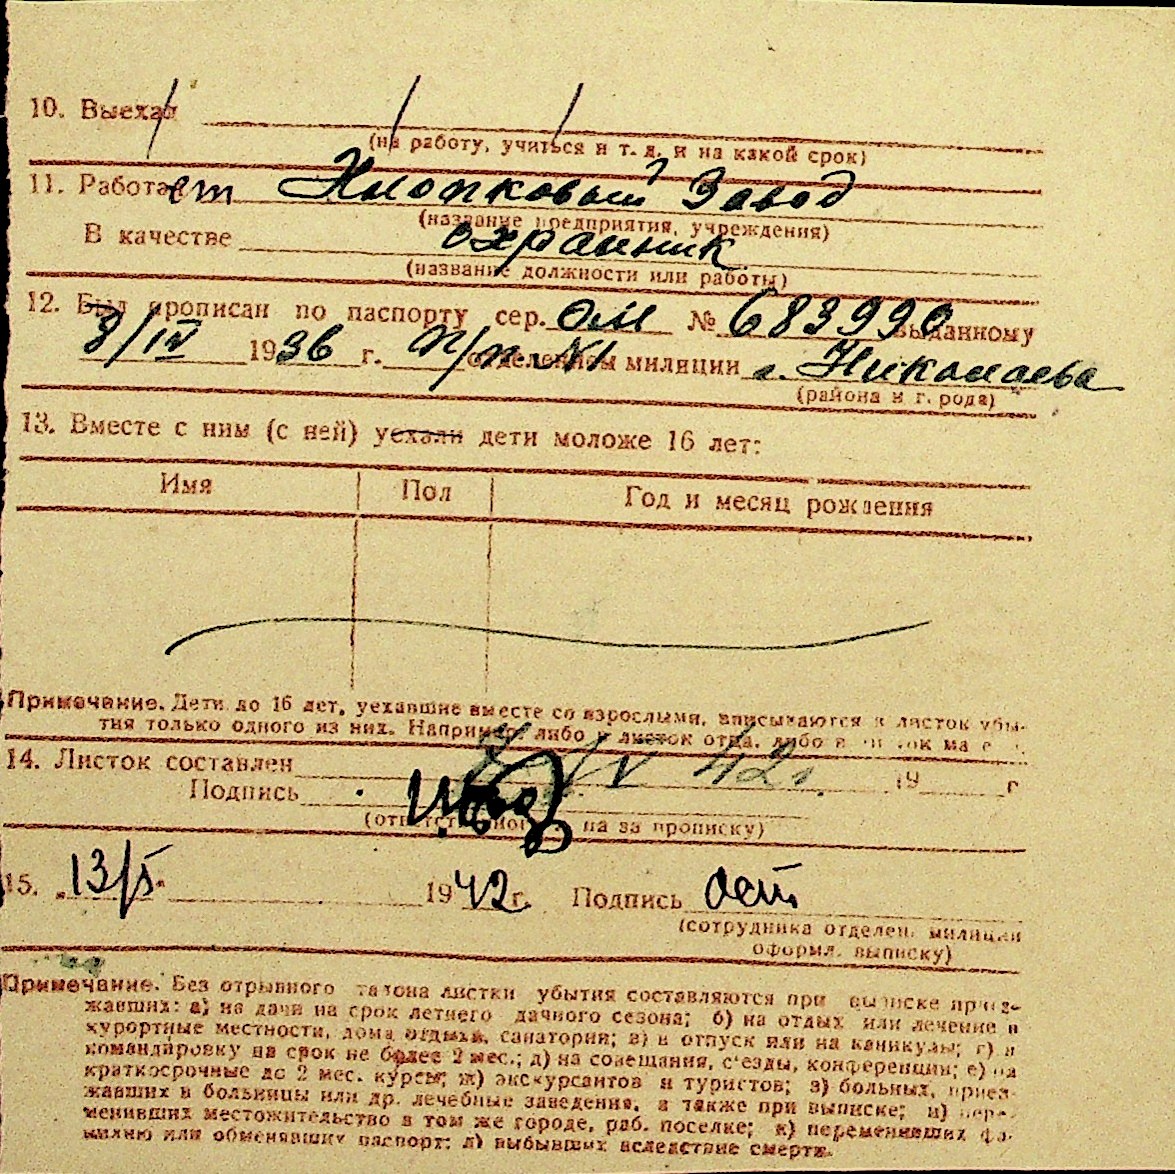 10. Выехал
(на работу, учиться и т. д. и на какой срок)
11. Работает Хлопковый Завод
(название предприятия, учреждения)
В качестве охранник
(название должности или работы)
12. Был прописан по паспорту сер. ОМ № 683990 выданному
8/IV 1936 г. П/П №1 отделением милиции г. Николаева
(района и г. рода)
13. Вместе с ним (с ней) уехали дети моложе 16 лет:
Имя Пол Год и месяц рождения
Примечание. Дети до 16 лет, уехавшие вместе со взрослыми, вписываются в листок убы-
тия только одного из них. Например либо в листок отца, либо в
14. Листок составлен /V 42 г. 19 г
Подпись
(ответственного на за прописку)
15. „13/5" 1942 г. Подпись
(сотрудника отделен. милиции
оформл. выписку)
Примечание. Без отрывного талона листки убытия составляются при выписке приез-
жавших: а) на дачи на срок летнего дачного сезона; б) на отдых или лечение в
курортные местности, дома отдыха, санатории; в) в отпуск или на каникулы; г) в
командировку на срок не более 2 мес.; д) на совещания, с'езды, конференции; е) на
краткосрочные до 2 мес. курсы; ж) экскурсантов и туристов; з) больных, приез-
жавших в больницы или др. лечебные заведения, а также при выписке; и) пере-
менивших местожительство в том же городе, раб. поселке; к) переменивших фа-
милию или обменявших паспорт; л) выбывших вследствие смерти.